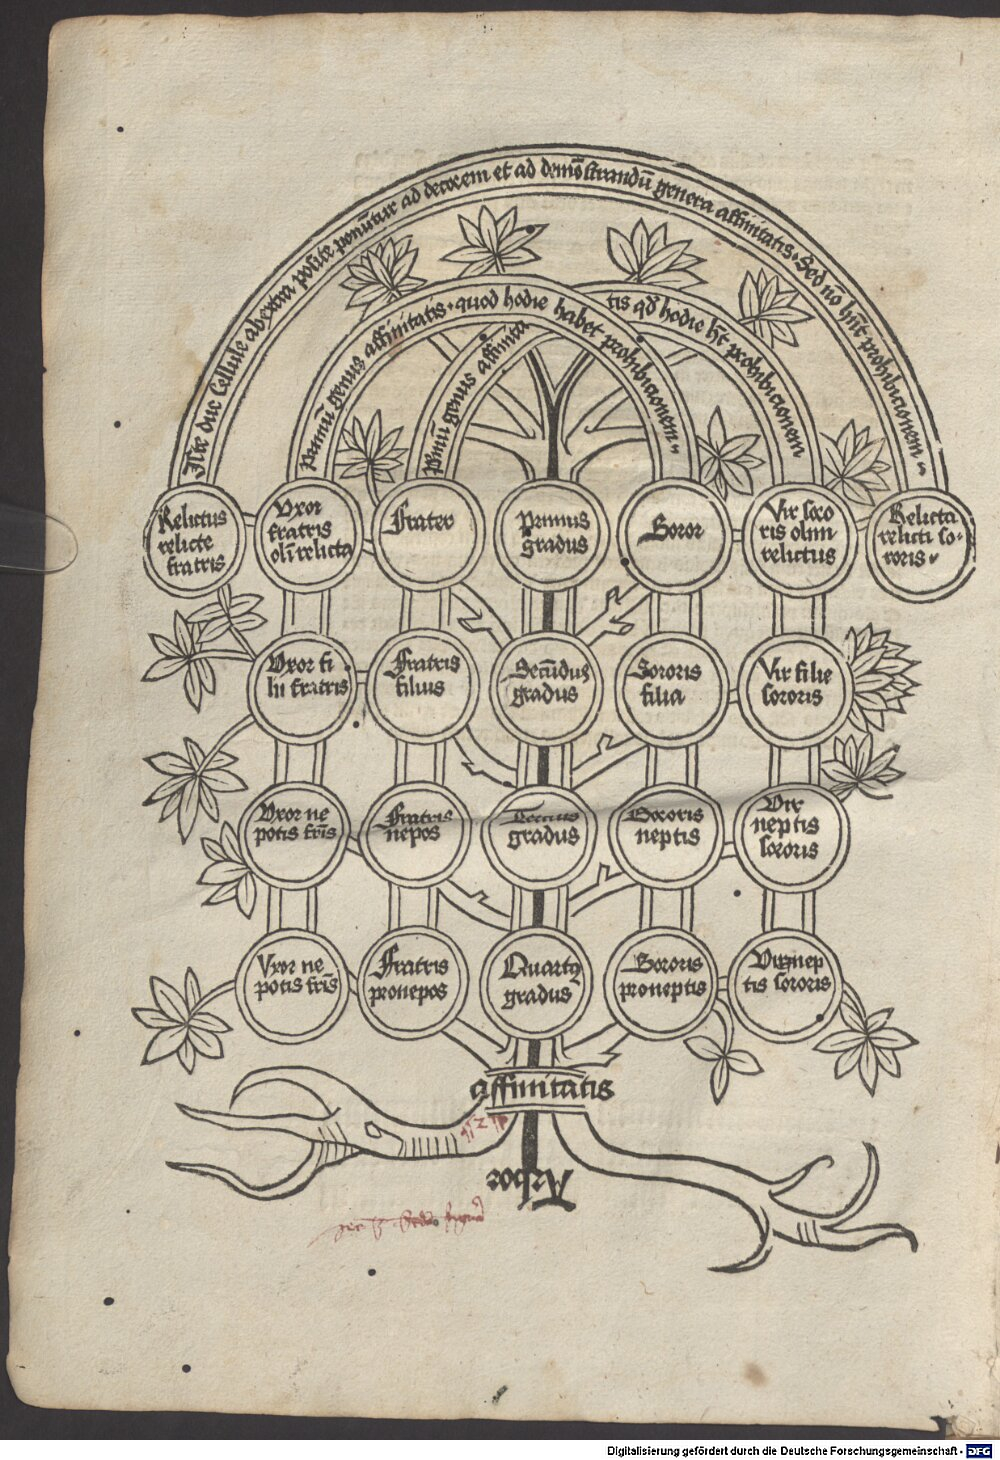 Iste due Cellule ab extra posite ponũtur ad decorem et ad demõstrandũ genera affinitatis. Sed nõ hñt prohibicionem
Primũ genus affinitatis. quod hodie habet prohibicionem
Primũ genus affinita
tis qđ hodie hñt prohibicionem
Relictus
relicte
fratris
Vxor
fratris
olĩ relicta
Frater
Primus
gradus
Soror
Vir soro
ris olim
relictus
Relicta
relicti so-
roris
Vxor fi
lii fratris
Fratris
filius
Secũdus
gradus
Sororis
filia
Vir filie
sororis
Vxor ne
potis fr̃is
Fratris
nepos
Tercius
gradus
Sororis
neptis
Vir
neptis
sororis
Vxor ne
potis fr̃is
Fratris
pronepos
Quartꝰ
gradus
Sororis
proneptis
Vir nep
tis sororis
affinitatis
Arbor
Digitalisierung gefördert durch die Deutsche Forschungsgemeinschaft - DFG